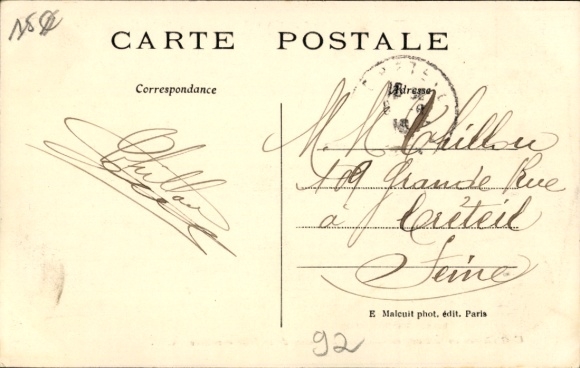 CARTE POSTALE
Correspondance
Adresse
M. M. Thillou
109 Grande Rue
à Créteil
Seine
E Malcuit phot. édit. Paris
92